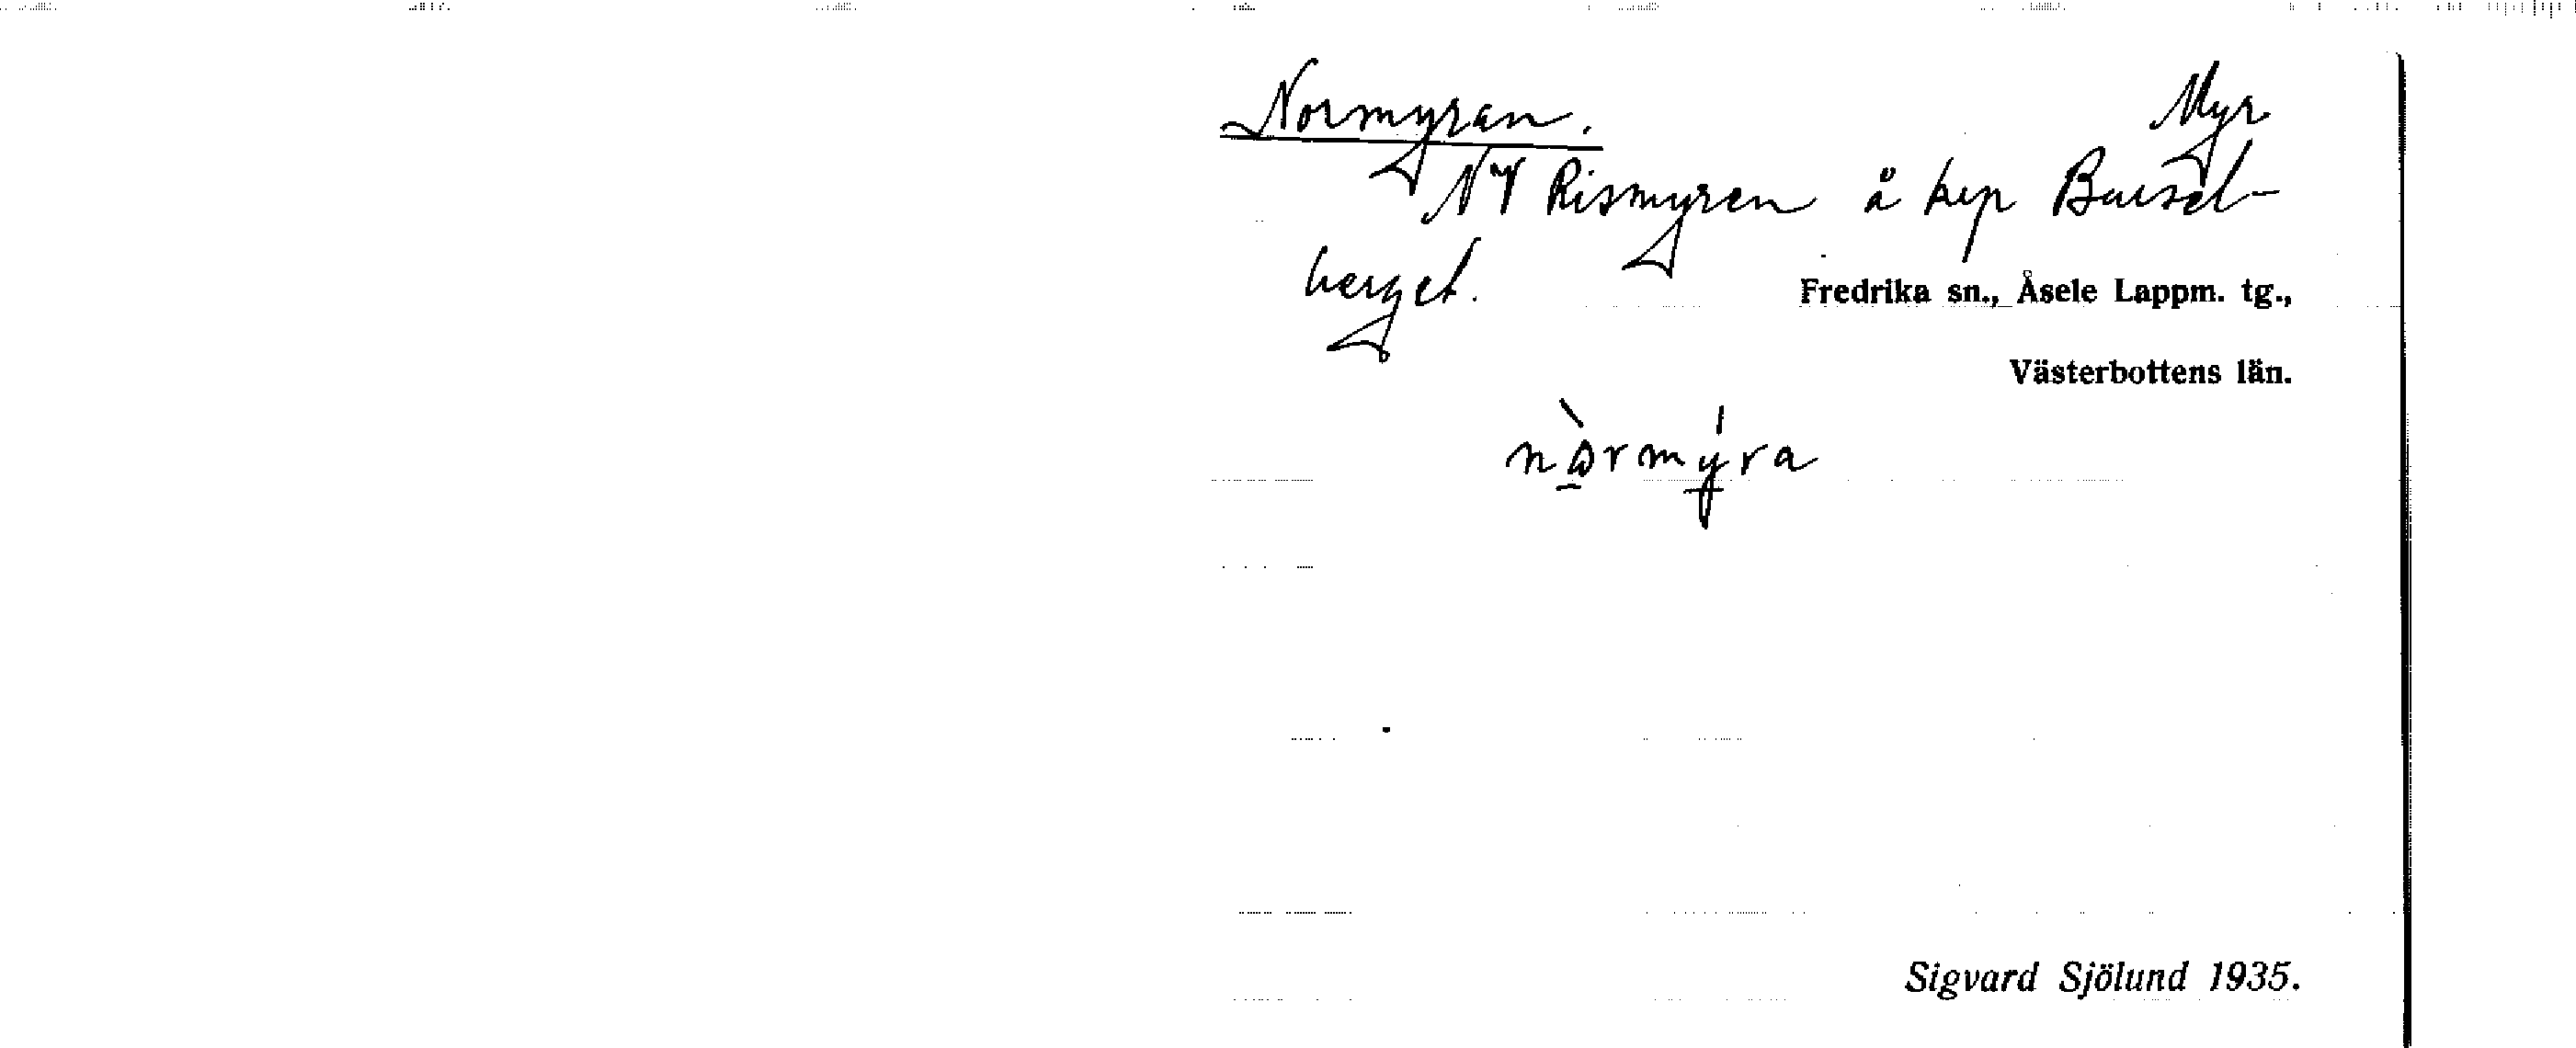 Normyran. Myr
N⁠ Rismyren å hyp Bursel-
berget.
Fredrika sn., Åsele Lappm. tg.,
Västerbottens län.
nòrmýra
Sigvard Sjölund 1935.